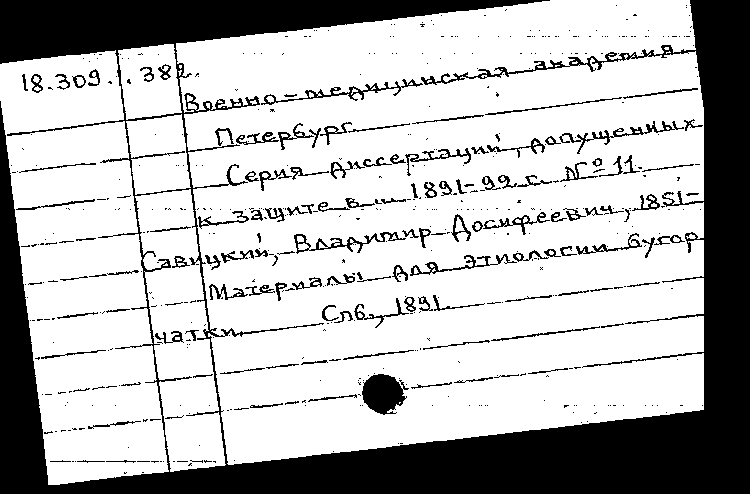 18.309.1.382.
Военно-медицинская академия.
Петербург.
Серия диссертаций, допущенных
к защите в ... 1891-99 г. № 11.
Савицкий, Владимир Досифеевич, 1851-
Материалы для этиологии бугор
чатки. Спб., 1891.